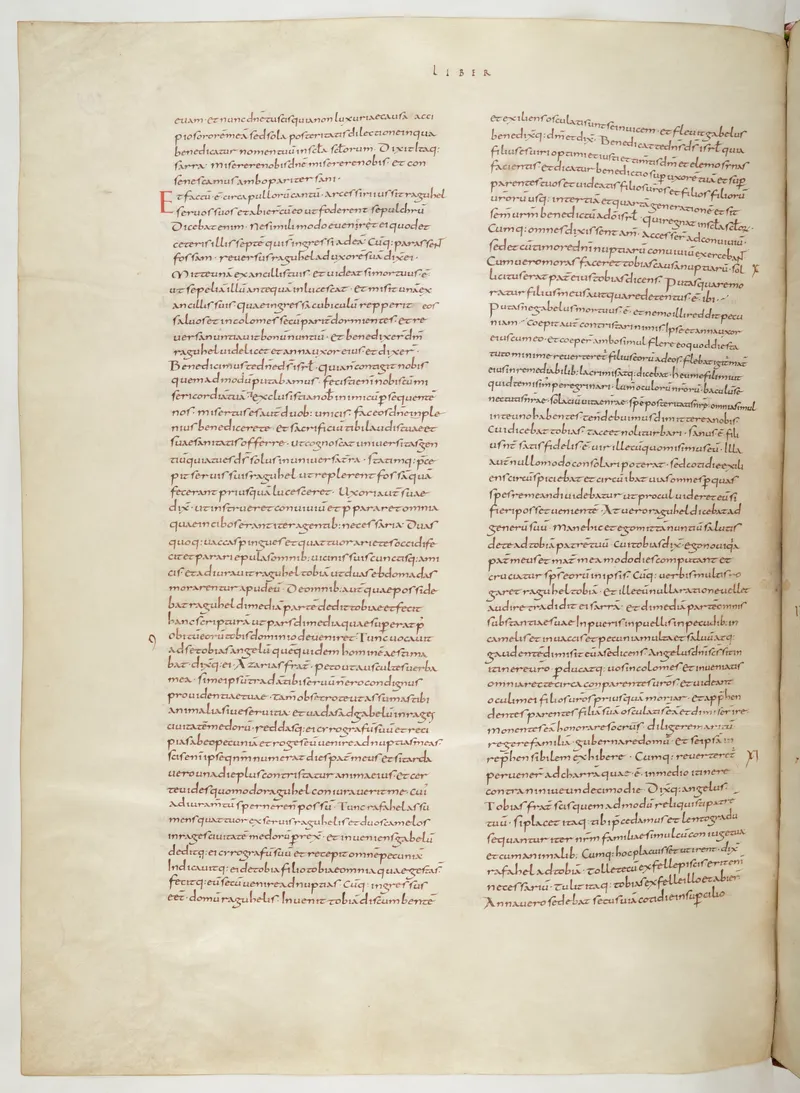 LIBER
euam · et nunc dñe tu scis quia non luxuriae causa acci
pio sororē meā sed sola posteritatis dilectione in qua
benedicatur nomen tuū in scła sćłorum · Dixit itaq:
sarra · miserere nobis dñe miserere nobis et con
senescamus ambo pariter sani ·
Et factū ē circa pullorū cantū · arcessiri iussit raguhel
seruos suos et abierc̄ū eo ut foderent sepulchrū
Dicebat enim · Ne simili modo euenir& ei quod et
ceteris illis septē qui s̄ ingressi ad eā · Cūq: parassent
fossam · reuersus raguhel ad uxorē suā dixei ·
Mitte unā ex ancillis tuis et uideat si mortuus ē
ut sepeliā illū antequā inlucescat · et misit unā ex
ancillis suis quae ingressa cubiculū repperit eos
saluos et incolomes secū parit̄ dormientes · et re
uersa nuntiauit bonū nuntiū · et benedixer̄ dm̄
raguhel uidelicet et anna uxor eius et dixer̄ ·
Benedicimus te dn̄e ds̄ isrł · quia n̄ contigit nobis
quem ad modū putabamus · fecisti enī nobiscū mi
sericordiā tuā et exclusisti a nobis inimicū psequentē
nos · misertus es aut̄ duob: unicis · fac eos dn̄e ple
nius benedicere te et sacrificiū tibi laudis tuae et
suae sanitatis offerre · ut cognoscat uniuersitas gen
tiū quia tu es ds̄ solus in uniuersa t̄ra · Statimq: p̄ce
pit seruis suis raguhel ut replerent fossā quā
fecerant priusquā lucesceret · Uxori aut̄ suae
dix̄ · ut instrueret conuiuiū et p̄pararet omnia
quae in cibos erant iter agentib: necessaria · Duas
quoq: uaccas pingues et quattuor arietes occidi fe
cit et parari epulas omnib: uicinis suis cunctisq: ami
cis et adiurauit raguhel tobiā ut duas ebdomadas
morarentur apud eū · De omnib: aut̄ quae posside
bat raguhel dimediā partē dedit tobiae et fecit
hanc scripturā ut pars dimedia quae superat p̄
obitū eorū tobis dominio deueniret · Tunc uocauit
ad se tobias angelū quē quidem hominē aestima
bat · dixq: ei · Azarias frat̄ · peto ut auscultes uerba
mea · si me ipsū tradā tibi seruū n̄ ero condignus
prouidentiae tuae · tam̄ obsecro te ut assumas tibi
animalia siue seruitia · et uadas ad gabelū in rages
ciuitatē medorū · reddasq: ei cyrografū suū et reci
pias ab eo pecuniā et roges eū uenire ad nuptias meas
scis enī ipse qm̄ numerat dies pat̄ meus et si tarda
uero una die plus contristatur anima eius et cer
te uides quomodo raguhel coniurauerit me · cui
adiuramtū spernere n̄ possū · Tunc rafahel assū
mens quattuor ex seruis raguhelis et duos camelos
in rages ciuitatē medorū prex̄ · et inueniens gabelū
dedit q: ei cyrografū suū et recepit omnē pecuniā
Indicauitq: ei de tobia filio tobiae omnia quae gesta s̄
fecitq: eū secū uenire ad nuptias · Cūq: ingressus
e&t · domū raguhelis · Inuenit tobiā discumbentē
et exiliens osculati sunt se inuicem · et fleuit gabelus
benedixq: dm̄ et dix̄ · Benedicat te dn̄s ds̄ isrł quia
filius es uiri optimi et iusti et timentis dm̄ et elemosinas
facientis et dicatur benedictio sup uxorē tuā et sup
parentes tuos et uideatis filios uros et filios filiorū
urorū usq: in tertiā et quartā generationē et sit
semen urm̄ benedictū a dō isrł · qui regnat in scła sćłoꝝ ·
Cumq: omnes dixissent am̄ · accesser̄ ad conuiuiū ·
sed et cū timore dn̄i nuptiarū conuiuiū exercebant
Cum uero moras faceret tobias causa nuptiarū · sol
X
licitus erat pat̄ eius tobias dicens · Putas quare mo
ratur filius meus aut quare detentus ē · ibi ·
Putas ne gabelus mortuus ē · et nemo illi reddit pecu
niam · coepit aut̄ contristari nimis ipse et anna uxor
eius cum eo · et coeper̄ ambo simul flere eo quod die sta
tuto minime reuerteret̄ filius eorū ad eos · flebat igit̄ mat̄
eius inremediabilib: lacrimis atq: dicebat · heu me fili mi ut
quid te misim peregrinari · lum̄ oculorū nr̄orū · baculū se
nectutis nrae · solaciū uitae nrae · spē posteritatis nrae omnia simul
in te uno habentes te n̄ debuimus dimittere a nobis ·
Cui dicebat tobias · tace et noli turbari · sanus ē fili
us nr̄ · satis fidelis ē uir ille cū quo misimus eū · Illa
aut̄ nullo modo consolari poterat · sed cotidie exili
ens circūspiciebat et circuibat uias omnes p quas
spes remeandi uidebatur ut procul uideret eū si
fieri posset ueniente · At uero raguhel dicebat ad
generū suū · Mane hic et ego mittā nuntiū salutis
de te ad tobiā patrē tuū · Cui tobias dix̄ · ego noui quia
pat̄ meus et mat̄ mea modo dies computant et
cruciatur sp̄s eorū in ipsis · Cūq: uerbis multis ro
garet raguhel tobiā · Et ille eū nulla ratione uellet
audire · tradidit ei sarrā · et dimediā partē omnis
substantiae suae · In pueris in puellis in pecudib: in
camelis et in uaccis et pecunia multa et saluū atq:
gaudentē dimisit eū a se dicens · Angelus dn̄i scs̄ sit in
itinere uro p̄ducatq: uos incolomes et inueniatis
omnia recte circa parentes uros et uideant
oculi mei filios uros priusquā moriar · et apphen
dentes parentes filiā suā osculati s̄ eā et dim̄ser̄ ire ·
monentes eā honorare socrus · diligere maritū
regere familiā · gubernare domū · et se ipsā in
rep̄hensibilem exhibere · Cumq: reuerterent̄
XI
peruener̄ ad charra quae ē in medio itinere
contra niniue undecimo die · Dixq: angelus ·
Tobias frat̄ scis quem ad modū reliquisti patrē
tuū · si placet itaq: tibi p̄cedamus et lento gradu
sequantur iter nrm̄ familiae simul cū coniuge tua
et cum animalib: · Cumq: hoc placuisset ut irent · dix̄
rafahel ad tobiā · Tolle tecū ex felle piscis erit enī
necessariū · Tulit itaq: tobias ex felle illo et abier̄
Anna uero sedebat secus uiā cotidie in supcilio